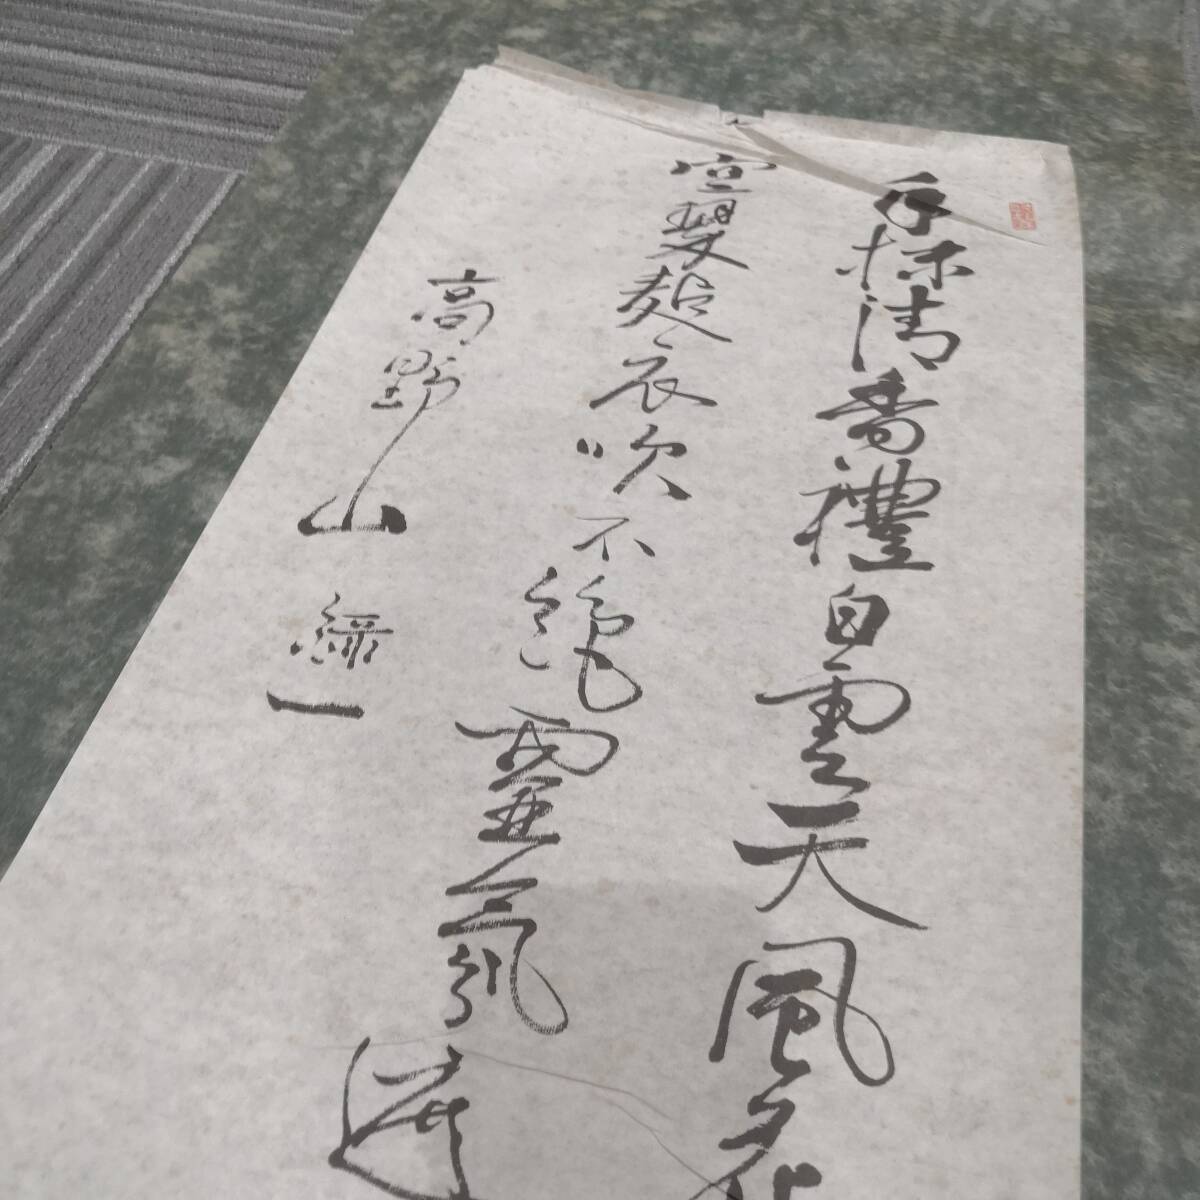 手抹清香禮白雲天風
空翠 衣吹不絶靈氣
高野山 一